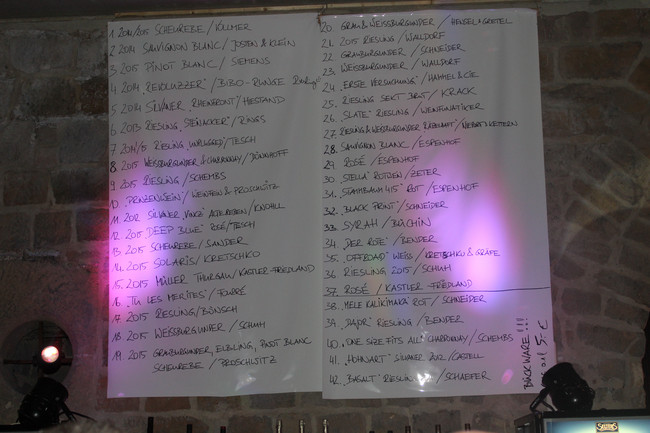 1 2014/2015 SCHEUREBE / VOLLMER
2 2014 SAUVIGNON BLANC / JOSTEN & KLEIN
3 2015 PINOT BLANC / SIEMENS
4 2014 "REVOLUZZER" / BIBO-RUNGE
5 2014 SILVANER "RHEINFRONT" / HESTAND
6 2013 RIESLING "STEINACKER" / RINGS
7 RIESLING "UNPLUGGED" / TESCH
8. 2015 WEISSBURGUNDER & CHARDONNAY / DÖNNHOFF
9. 2015 RIESLING / SCHEMBS
10. "PRINZENWEIN" / WERTEIN & PROSCHLITZ
11. 2012 SILVANER "VINZ" ALTE REBEN / KNOLL
12. 2015 "DEEP BLUE" ROSÉ / TESCH
13. 2015 SCHEUREBE / SANDER
14. 2015 SOLARIS / KRETSCHKO
15. 2015 MÜLLER THURGAU / KASTLER-FRIEDLAND
16. "TU LES MERITES" /
17. 2015 RIESLING / BÜNSCH
18 2015 WEISSBURGUNDER / SCHUH
19. 2015 GRAUBURGUNDER, ELBLING, PINOT BLANC
SCHEUREBE / PROSCHLITZ
20. GRAU & WEISSBURGUNDER / HENSEL & GRETEL
21. 2015 RIESLING / WALLDORF
22. GRAUBURGUNDER / SCHNEIDER
23. WEISSBURGUNDER / WALLDORF
24. "ERSTE VERSUCHUNG" / HAMMEL & CIE
25. RIESLING SEKT BRUT / KRACK
26. "SLATE" RIESLING / WEINFUNATIKER
27. RIESLING & WEISSBURGUNDER
28. SAUVIGNON BLANC / ESPENHOF
29. ROSÉ / ESPENHOF
30. "STELLA" ROTWEIN / ZETER
31. "STAMMBAUM 415" ROT / ESPENHOF
32. "BLACK PRINT" / SCHNEIDER
33. SYRAH / BÜCHIN
34. "DER ROTE" / BENDER
35. "OFFROAD" WEIß / KRETSCHKO & GRÄFE
36 RIESLING 2015 / SCHUH
37 ROSÉ / KASTLER-FRIEDLAND
38. MELE KALIKIMAKA ROT / SCHNEIDER
39. "DAJOR" RIESLING / BENDER
40. "ONE SIZE FITS ALL" CHARDONNAY / SCHEMBS
41. "HOHNART" SILVANER 2012 / CASTELL
42. "BASALT" RIESLING / SCHAEFER
BÜCKWARE!!!
5€